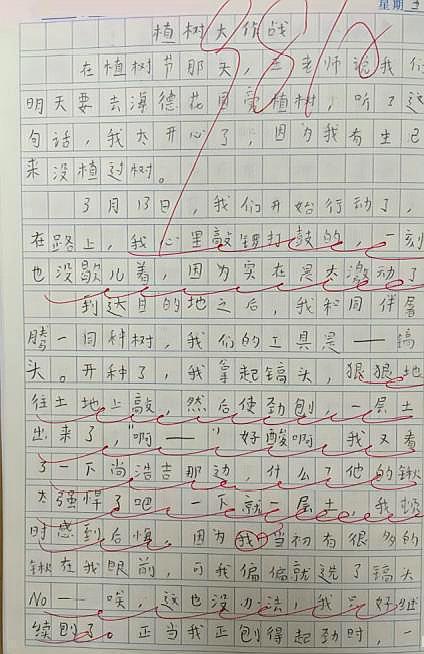 星期
植树大作战
在植树节那天,王老师说我们
明天要去海德花园旁植树,听了这
句话,我太开心了,因为我有生已
来没植过树。
3月13日,我们开始行动了,
在路上,我心里敲锣打鼓的,一刻
也没歇儿着,因为实在是太激动了
到达目的地之后,我和同伴
腾一同种树,我们的工具是——镐
头。开种了,我拿起镐头,狠狠地
往土地上敲,然后使劲刨,一层土
出来了,"啊——"好酸啊,我又看
了一下尚浩吉那边,什么?他的锹
太强悍了吧,一下就一层土,我顿
时感到后悔,因为我当初有很多的
锹在我眼前,可我偏偏就选了镐头
No——唉,这也没办法,我只好继
续刨了。正当我正刨得起劲时,一